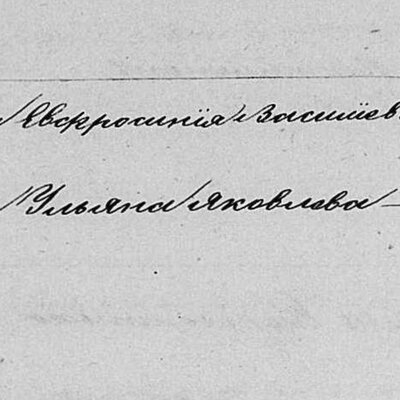 Евфросинія Василіев
Ульяна Яковлева